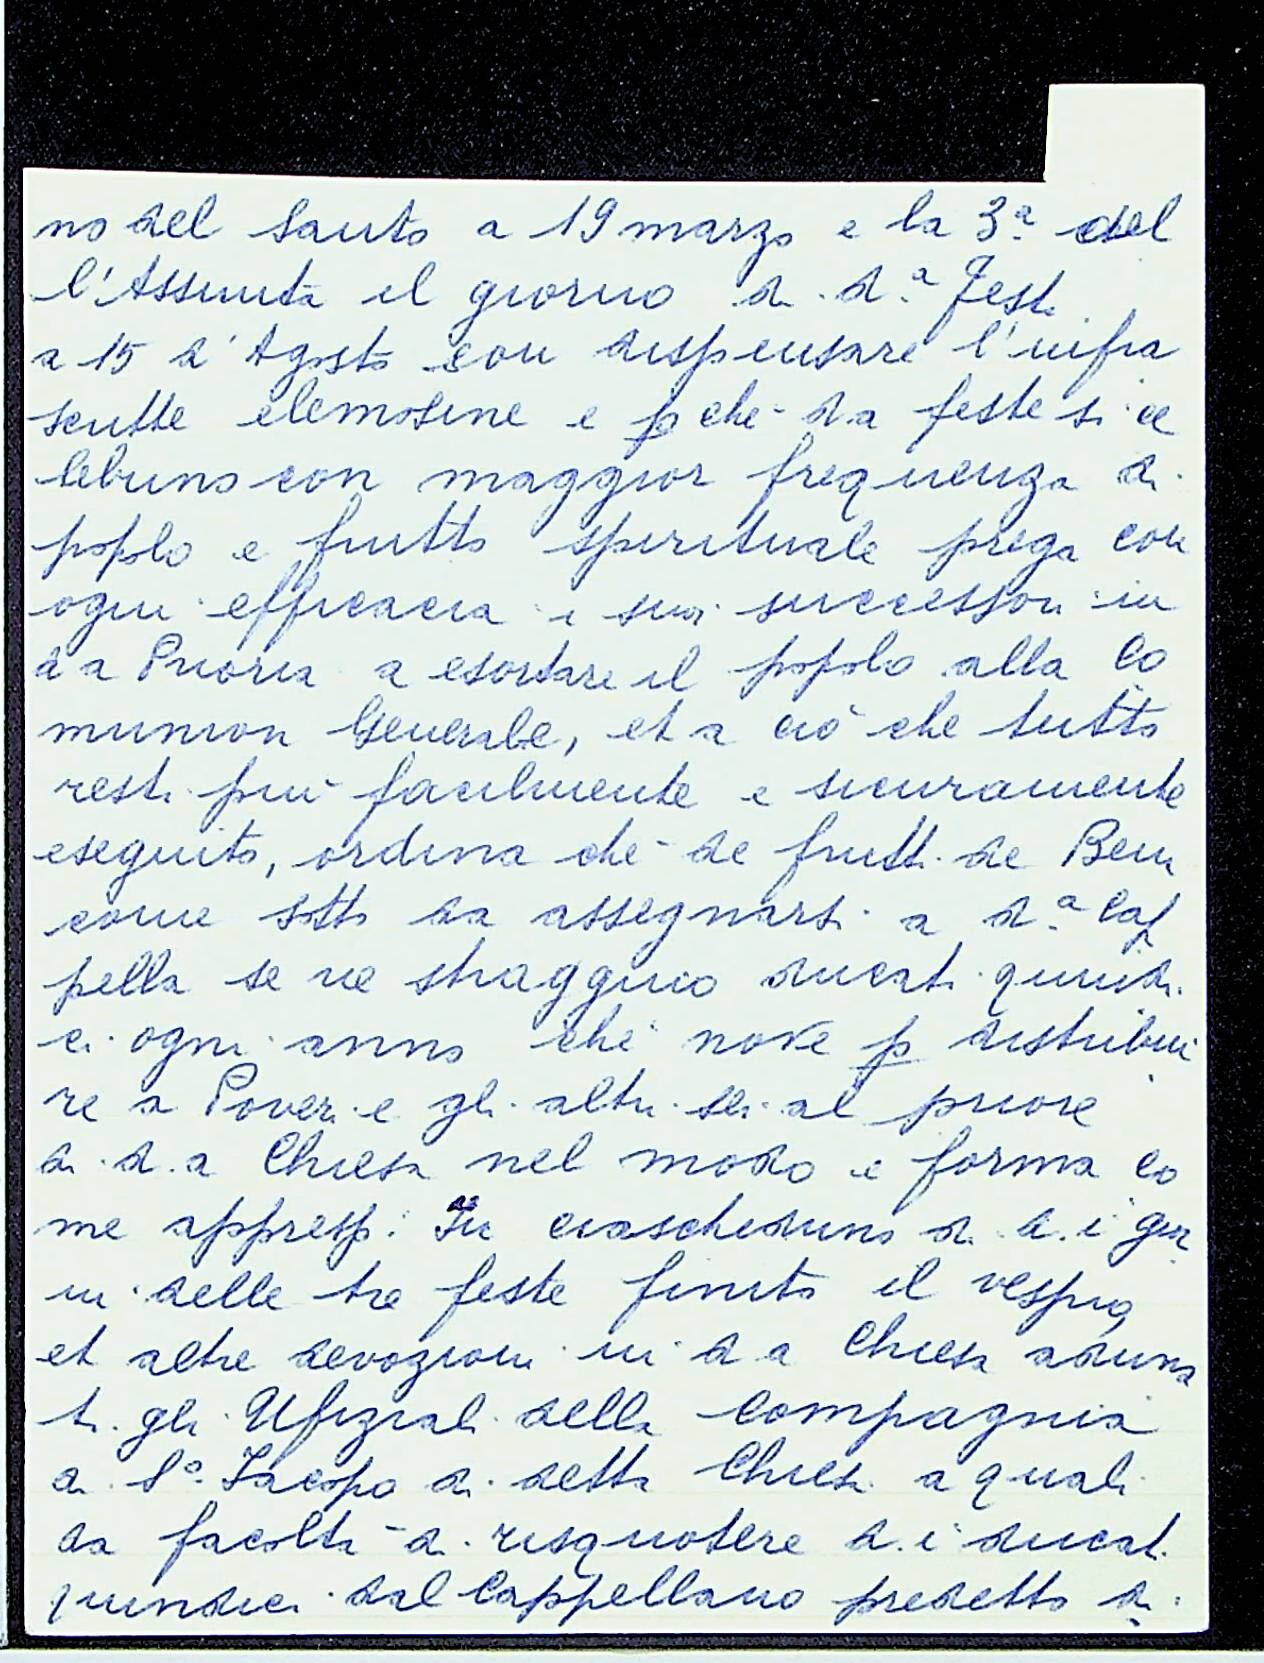 no del Santo a 19 marzo e la 3.ª del
l'Assunta il giorno di d.ª Festa
a 15 d'Agosto con dispensare l'infra
scritte elemosine e p che d.a feste si ce
lebrino con maggior frequenza di
popolo e frutto spirituale prega con
ogni efficacia i suoi successori in
d a Prioria a esortare il popolo alla Co
munion Generale, et a ciò che tutto
resti più facilmente e sicuramente
eseguito, ordina che de frutti de Beni
come sotto da assegnarsi a d.ª Cap
pella se ne stragghino ducati quindi
ci ogni anno che nove p distribui
re a Poveri e gli altri sei al priore
di d.a Chiesa nel modo e forma co
me appresp: In ciascheduno di d.i gior
ni delle tre feste finito il vespro
et altre devozioni in d a Chiesa aduna
ti gli Ufiziali della Compagnia
di S.º Jacopo di detta Chiesa a quali
da facoltà di risquotere d.i ducati
quindici dal Cappellano predetto di